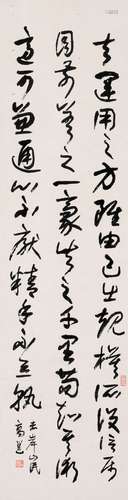 夫運用之方雖由己出規模所設信屬
目前差之一豪失之千里苟知其術
適可兼通心不厭精手不忘熟
赤岸山民
高邕